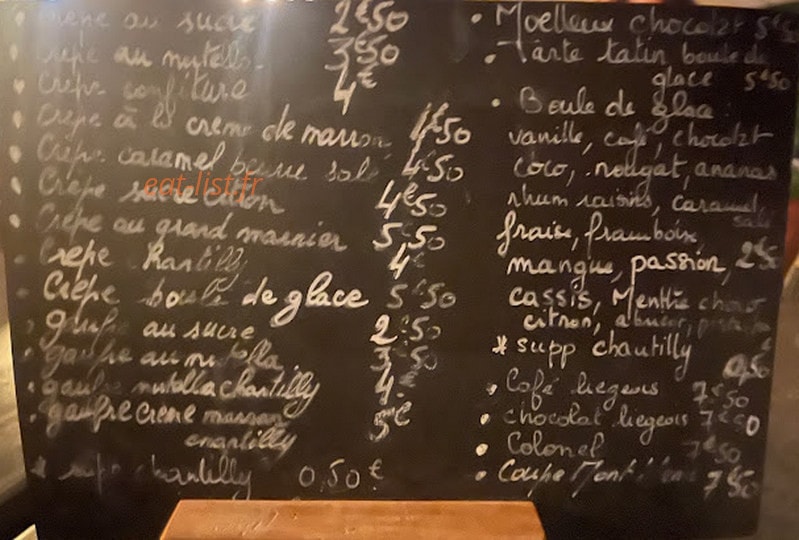 Crêpe au sucre 2€50
Crêpe au nutella 3€50
Crêpe confiture 4€
Crêpe à la creme de marron 4€50
Crêpe caramel beurre salé 4€50
Crêpe sucre citron 4€50
Crêpe au grand marnier 5€50
Crêpe chantilly 4€
Crêpe boule de glace 5€50
gaufre au sucre 2€50
gaufre au nutella 3€50
gaufre nutella chantilly 4€
gaufre creme marron 5€
chantilly
* supp chantilly 0,50€
• Moelleux chocolat 5€50
• Tarte tatin boule de
glace 5€50
• Boule de glace
vanille, café, chocolat
coco, nougat, ananas
rhum raisins, caramel
salé
fraise, framboise,
mangue, passion, 2€50
cassis, Menthe
citron,
* supp chantilly
0,50€
• Café liegeois 7€50
• chocolat liegeois 7€50
• Colonel 7€50
• Coupe 7€50
eat-list.fr